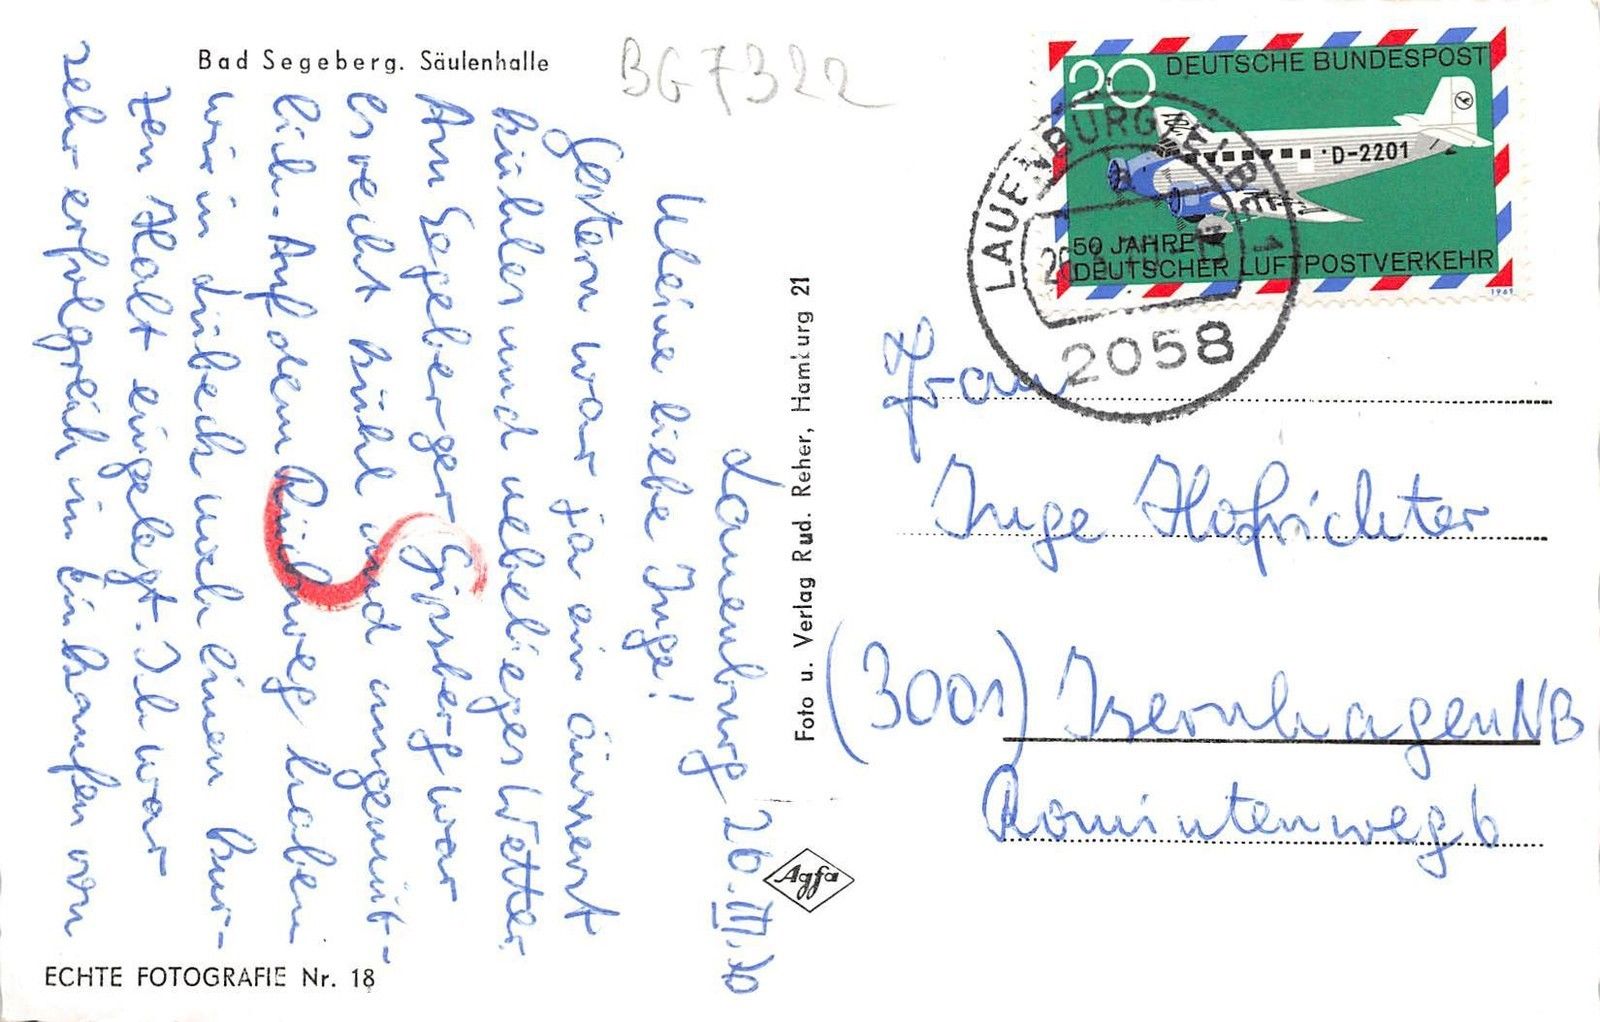 Bad Segeberg. Säulenhalle
BG7322
Lauenburg 26.III.70
Meine liebe Inge!
Gestern war ja ein äusserst
kühles und nebeliges Wetter.
Am Segeberger Gipsberg war
es recht kühl und ungemüt-
lich. Auf dem Rückweg haben
wir in Lübeck noch einen kur-
zen Halt eingelegt. Ich war
sehr erfolgreich im Einkaufen von
ECHTE FOTOGRAFIE Nr. 18
Foto u. Verlag Rud. Reher, Hamburg 21
Agfa
20 DEUTSCHE BUNDESPOST
D-2201
50 JAHRE
DEUTSCHER LUFTPOSTVERKEHR
1969
LAUENBURG/ELBE 1
2058
Frau
Inge Hofrichter
(3001) Isernhagen NB
Romintenweg 6